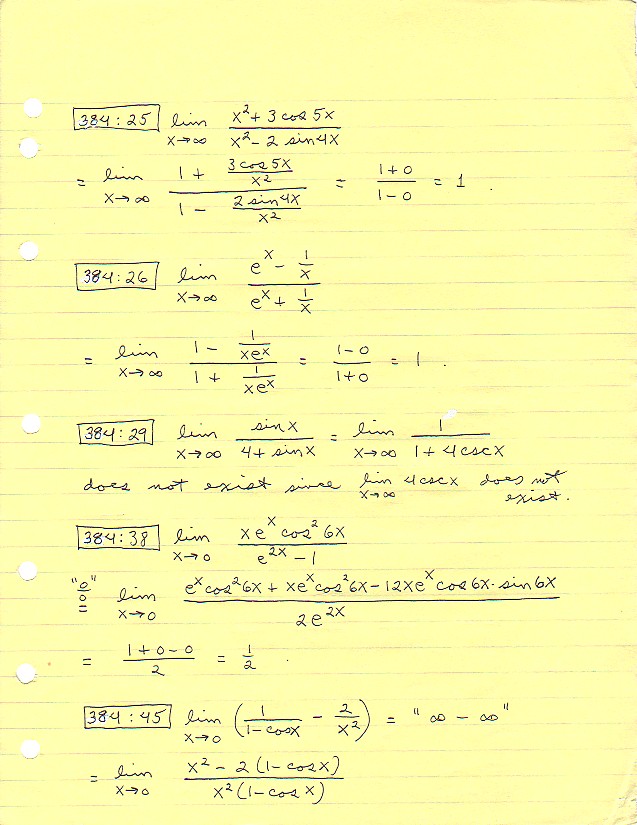 384:25 lim x→∞ (x² + 3 cos 5x)/(x² - 2 sin 4x)
= lim x→∞ (1 + (3 cos 5x)/x²)/(1 - (2 sin 4x)/x²) = (1+0)/(1-0) = 1 .
384:26 lim x→∞ (e^x - 1/x)/(e^x + 1/x)
= lim x→∞ (1 - 1/(xe^x))/(1 + 1/(xe^x)) = (1-0)/(1+0) = 1 .
384:29 lim x→∞ (sin x)/(4 + sin x) = lim x→∞ 1/(1 + 4 csc x)
does not exist since lim x→∞ 4 csc x does not exist.
384:38 lim x→0 (xe^x cos² 6x)/(e^(2x) - 1)
"0/0" = lim x→0 (e^x cos² 6x + xe^x cos² 6x - 12xe^x cos 6x · sin 6x)/(2e^(2x))
= (1+0-0)/2 = 1/2 .
384:45 lim x→0 (1/(1-cos x) - 2/x²) = "∞ - ∞"
= lim x→0 (x² - 2(1-cos x))/(x²(1-cos x))